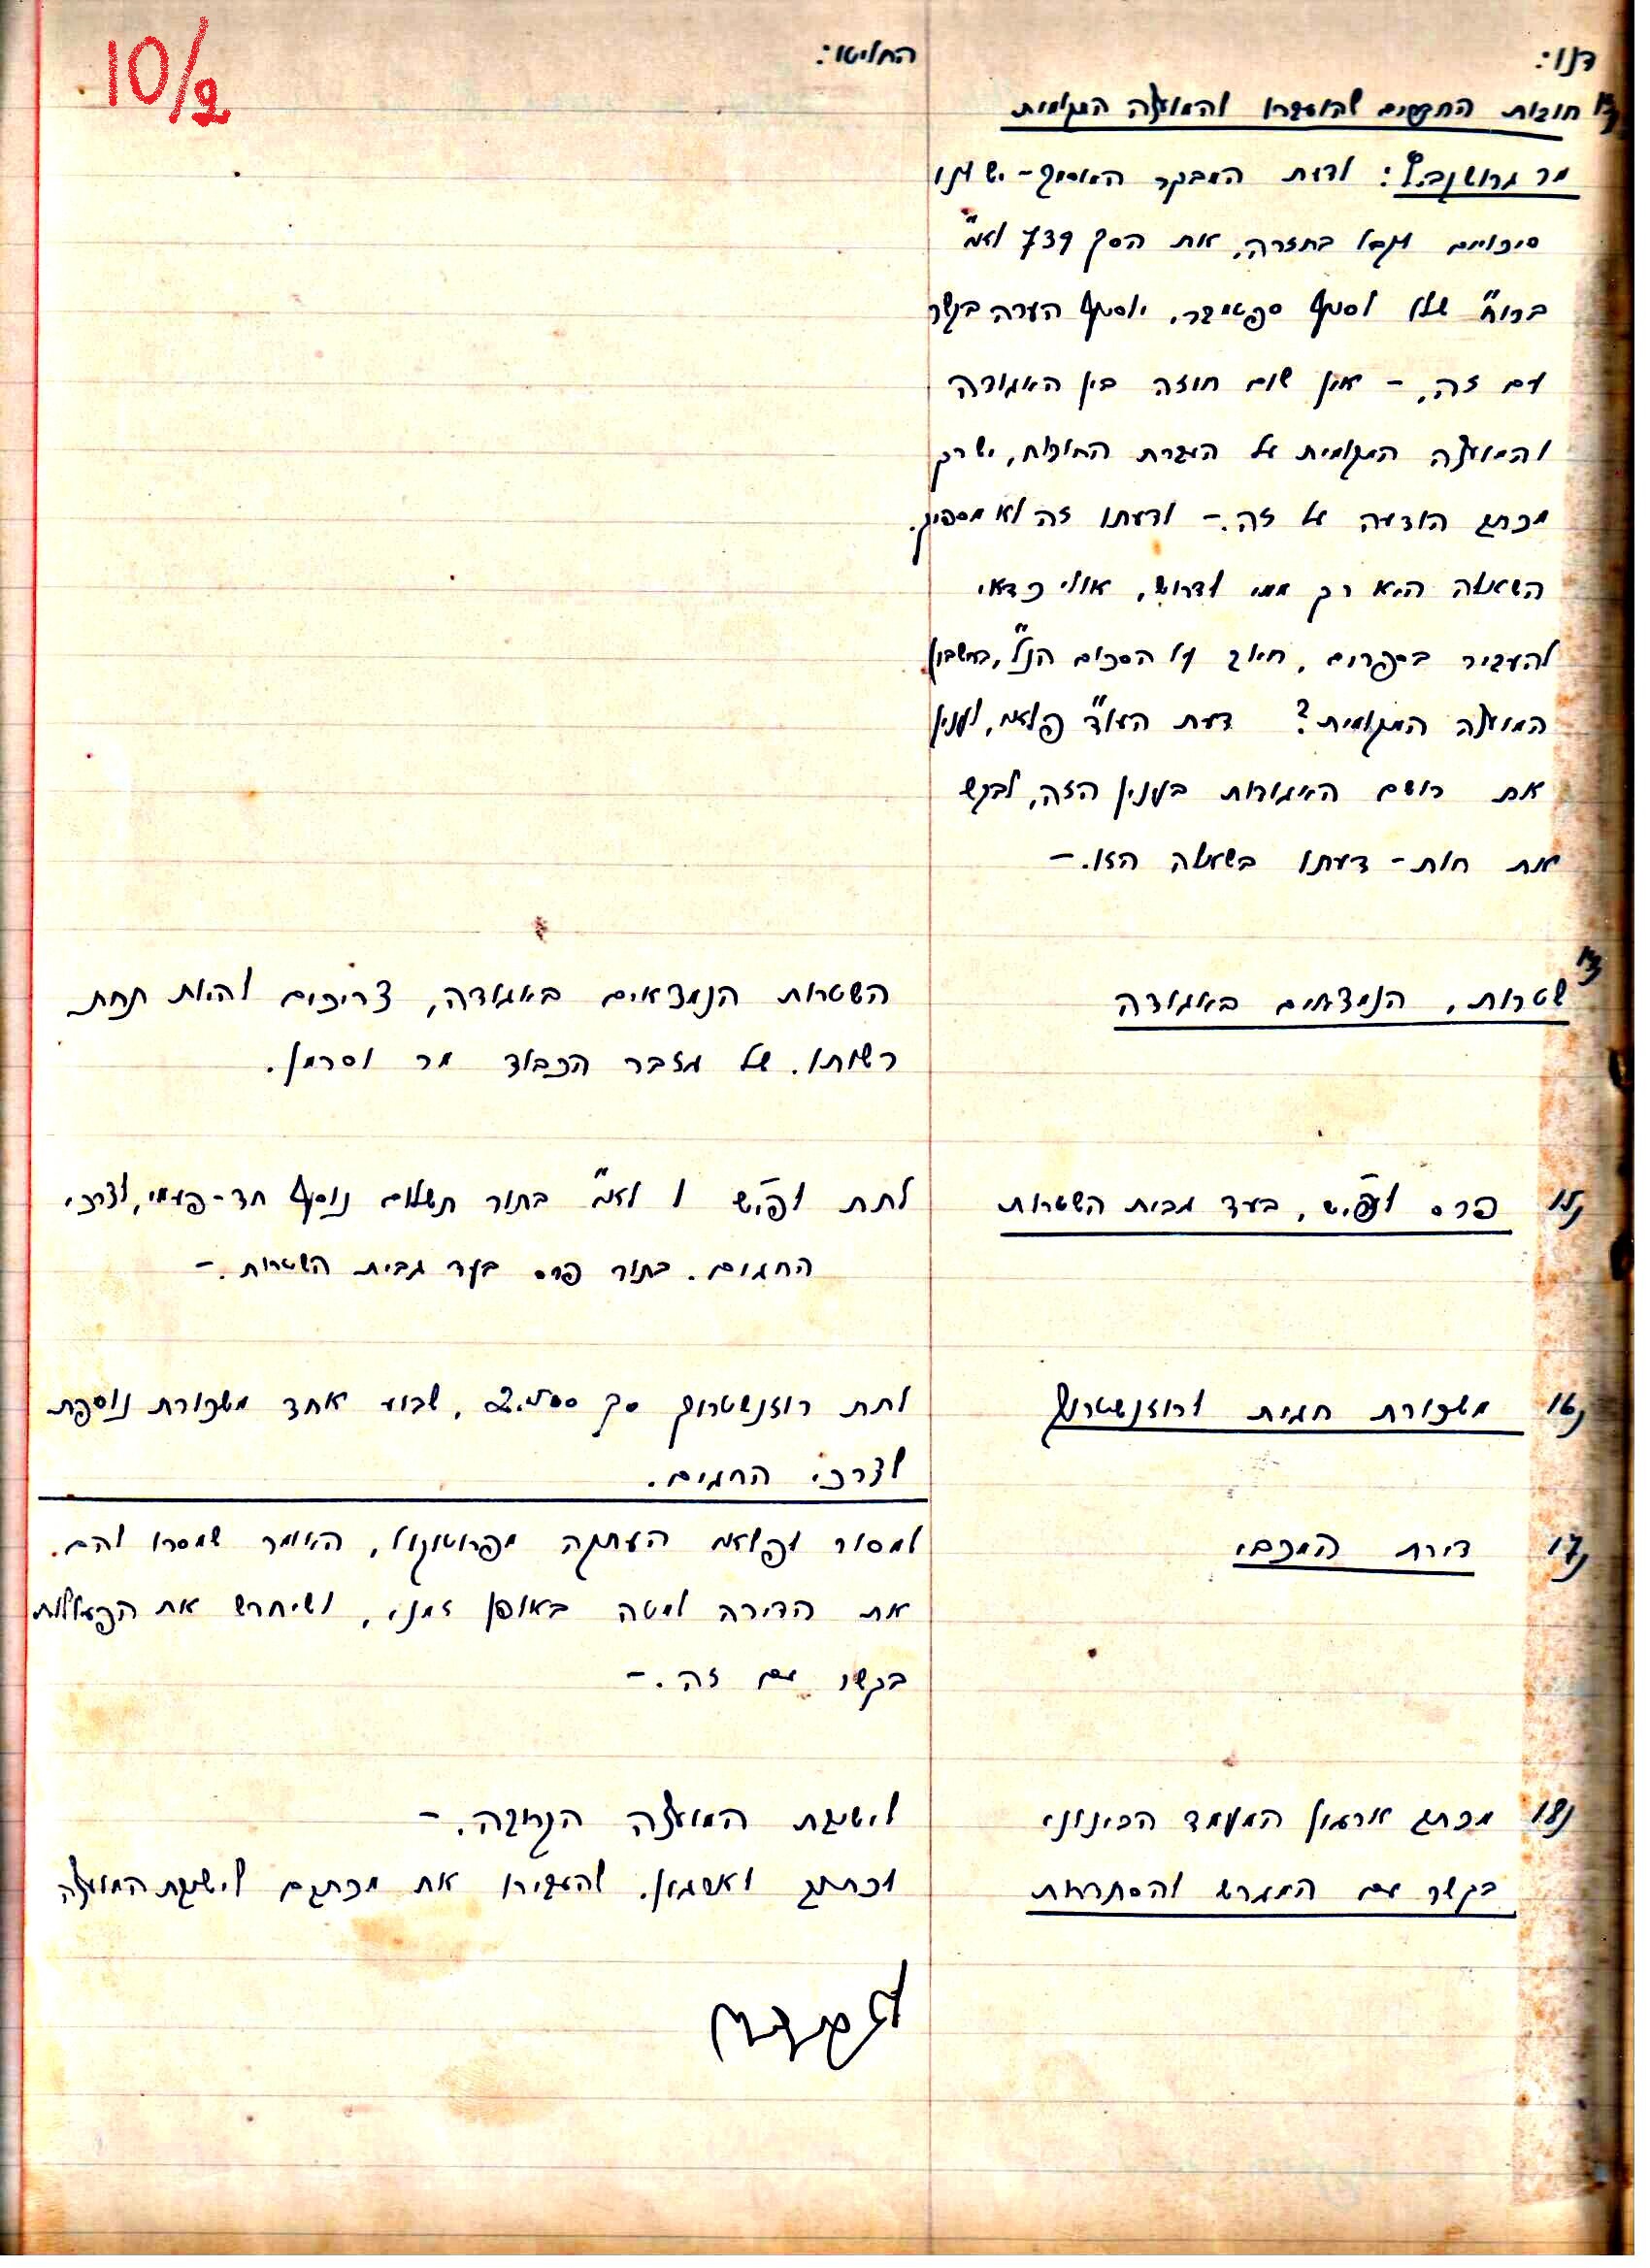 10/2
דנו:
החליטו:
חובות החברים שהועברו למועצה המקומית
מר גרושנב.פ: לדעת המבקר האוסף - יש לנו
סיכויים לקבל בחזרה, את הסך 739 לא"י
ברו"ח שלו לסוף ספטמבר, יוסיף הערה בקשר
עם זה, - אין שום חוזה בין האגודה
והמועצה המקומית על העברת החובות, יש רק
מכתב הודעה על זה. - לדעתו זה לא מספיק.
השאלה היא רק ממי לדרוש, אולי כדאי
להעביר בספרים, חיוב על הסכום הנ"ל, בחשבון
המועצה המקומית? דעת העו"ד פלאם, לענין
את רושם האגודות בענין הזה, לבקש
את חות - דעתו בשאלה הזו. -
שטרות, הנמצאים באגודה
השטרות הנמצאים באגודה, צריכים להיות תחת
רשותו. של גזבר הכבוד מר וסרמן.
15) פרס לפיש, בעד גבית השטרות
לתת לפיש 1 לא"י בתור תשלום נוסף חד-פעמי, לצרכי
החגים. בתור פרס בעד גבית השטרות. -
16) משכורת חגית לרוזנשטרוך
לתת רוזנשטרוך סך 2.500, שבוע אחד משכורת נוספת
לצרכי החגים.
17) דירת המכבי
למסור לפלאם העתקה מפרוטוקול, האומר שמסרו להם.
את הדירה למטה באופן זמני, ושיחדש את הפעולות
בקשר עם זה. -
18) מכתב ארגון המעמד הבינוני
בקשר עם המגרש להסתדרות
לישיבת המועצה הקרובה. -
לכתוב לארגון. להעבירו את מכתבם לישיבת המועצה